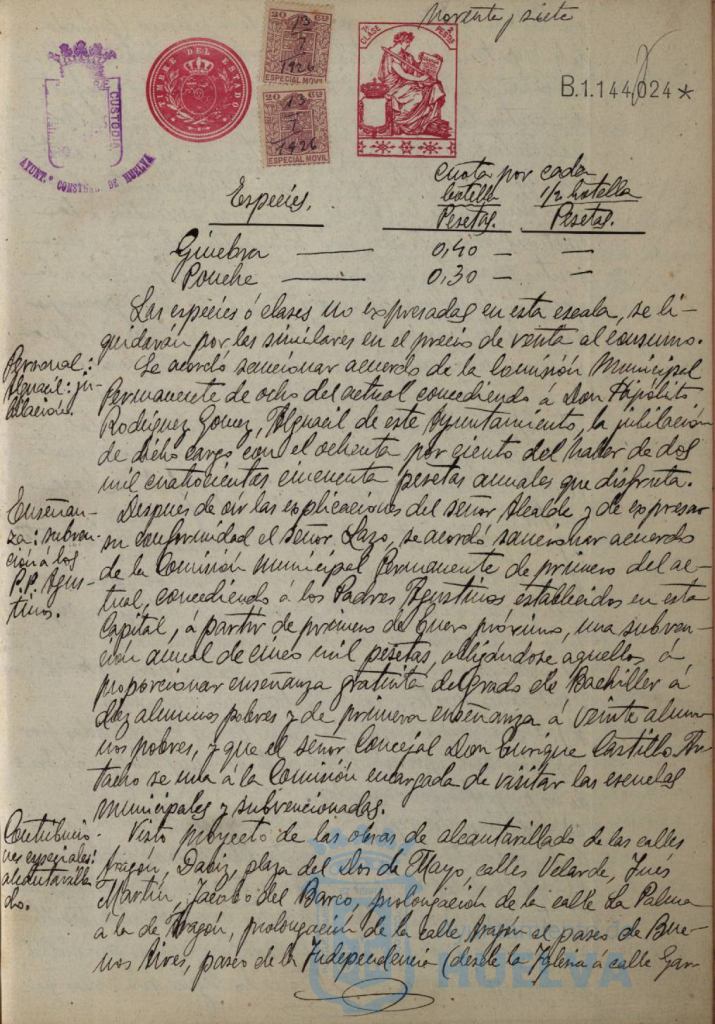 Noventa y siete
CUSTODIA
AYUNT.º CONSTNAL DE HUELVA
TIMBRE DEL ESTADO
ESPECIAL MOVIL
13
7
1926
ESPECIAL MOVIL
13
7
1926
CLASE PESETAS
B.1.144,024*
cuota por cada
Especies. botella 1/2 botella
Pesetas. Pesetas.
Ginebra — 0,40 — —
Ponche — 0,30 — —
Las especies ó clases no expresadas en esta escala, se li-
quidarán por las similares en el precio de venta al consumo.
Personal:
Alguacil: ju-
bilación.
Se acordó sancionar acuerdo de la Comisión Municipal
Permanente de ocho del actual concediendo á Don Hipólito
Rodríguez Gomez, Alguacil de este Ayuntamiento, la jubilación
de dicho cargo con el ochenta por ciento del haber de dos
mil cuatrocientas cincuenta pesetas anuales que disfruta.
Enseñan-
za: subven-
ción á los
P.P. Agus-
tinos.
Después de oir las explicaciones del señor Alcalde y de expresar
su conformidad el señor Lazo, se acordó sancionar acuerdo
de la Comisión Municipal Permanente de primero del ac-
tual, concediendo á los Padres Agustinos establecidos en esta
Capital, á partir de primero de Enero próximo, una subven-
ción anual de cinco mil pesetas, obligándose aquellos á
proporcionar enseñanza gratuita del grado de Bachiller á
diez alumnos pobres y de primera enseñanza á veinte alum-
nos pobres, y que el señor Concejal Don Enrique Castillo Ar-
tacho se una á la Comisión encargada de visitar las escuelas
municipales y subvencionadas.
Contribucio-
nes especiales:
alcantarilla
do.
Visto proyecto de las obras de alcantarillado de las calles
Aragón, Daoiz, plaza del Dos de Mayo, calles Velarde, Inés
Martín, Jacobo del Barco, prolongación de la calle La Palma
á la de Aragón, prolongación de la calle Aragón al paseo de Bue-
nos Aires, paseo de la Independencia (desde la Iglesia a calle Gar-
HUELVA